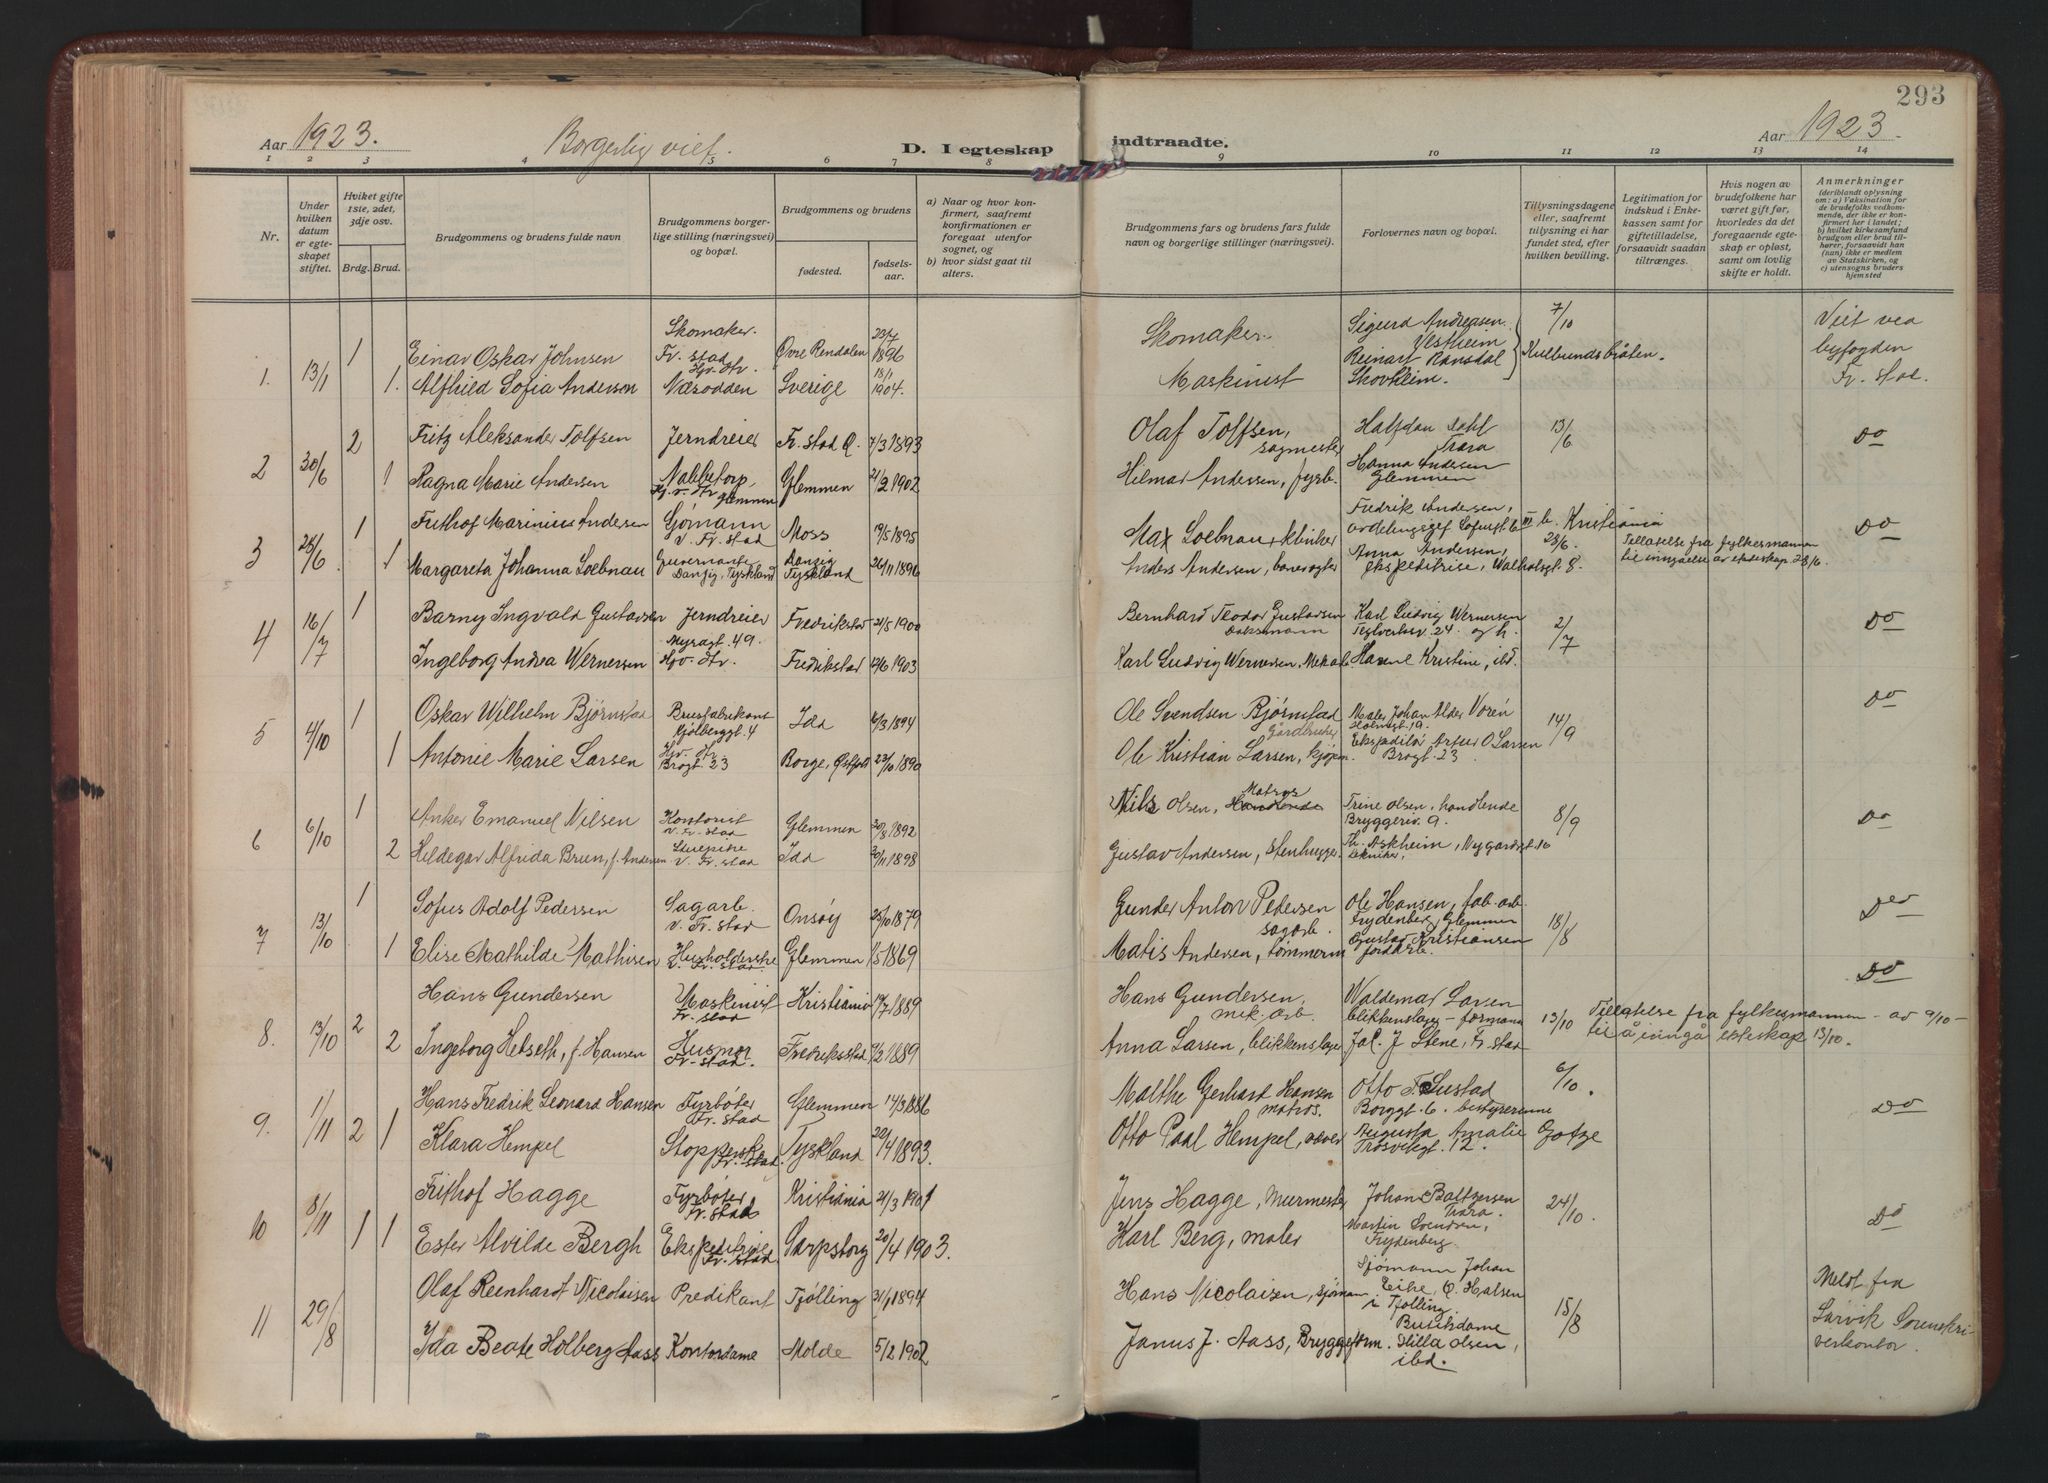 293
Aar 1923. Borgerlig viet. D. I egteskap indtraadte. Aar 1923.
1 2 3 4 5 6 7 8 9 10 11 12 13 14
Nr.
Under hvilken datum er egteskapet stiftet.
Hviket gifte 1ste, 2det, 3dje osv.
Brdg. Brud.
Brudgommens og brudens fulde navn
Brudgommens borgerlige stilling (næringsvei) og bopæl.
Brudgommens og brudens
fødested.
fødselsaar.
a) Naar og hvor konfirmert, saafremt konfirmationen er foregaat utenfor sognet, og
b) hvor sidst gaat til alters.
Brudgommens fars og brudens fars fulde navn og borgerlige stillinger (næringsvei).
Forlovernes navn og bopæl.
Tillysningsdagene eller, saafremt tillysning ei har fundet sted, efter hvilken bevilling.
Legitimation for indskud i Enkekassen samt for giftetilladelse, forsaavidt saadan tiltrænges.
Hvis nogen av brudefolkene har været gift før, hvorledes da det foregaaende egteskap er opløst, samt om lovlig skifte er holdt.
Anmerkninger
(deriblandt oplysning om: a) Vaksination for de brudefolks vedkommende, der ikke er konfirmert her i landet;
b) hvilket kirkesamfund brudgom eller brud tilhører, forsaavidt han (nan) ikke er medlem av Statskirken, og
c) utensogns bruders hjemsted
1. 13/1 1 Einar Oskar Johnsen Skomaker. Fr. stad Øvre Rendalen 23/7 1896 Skomaker. Sigurd Andreasen Vestheim 7/10 Viet ved byfogden Fr. stad.
1. Alfhild Sofia Anderson Hv. dtr. Næsodden Sverige 18/1 1904. Maskinist Reinart Ransdal Skovheim. Kulbundsbråten.
2 30/6 2 Fritz Aleksander Tolfsen Jerndreier Fr. stad O. 7/3 1893 Olaf Tolfsen, sagmester Halfdan Dahl Trara 13/6 Do
1 Ragna Marie Andersen Nabbetorp Hj. v. dtr Glemmen Glemmen 21/2 1902 Hilmar Andersen, fyrb. Hanna Andersen Glemmen
3 26/6 1 Frithof Marinius Andersen Sjømann v. Fr. stad Moss 19/5 1895 Max Loebnau, klinker Fredrik Andersen, Kristiania 23/6. Do
1 Margareta Johanna Loebnau Guvernante Danzig, Tyskland Danzig Tyskland 26/11 1896 Anders Andersen, banevogter Anna Andersen, ekspeditrise, 8. Tillatelse fra fylkesmannen til inngåelse av ekteskap 23/6.
4 16/7 1 Barny Ingvald Gustavsen Jerndreier Myragt. 49. Fredrikstad 21/5 1900 Bernhard Teodor Gustavsen Karl Ludvig Wernersen Teglverksv. 24. og h. 2/7 Do
1 Ingeborg Andrea Wernersen Hjv. dtr. Fredrikstad 12/6 1903 Karl Ludvig Wernersen, Mek. arb. Kristine, ibd.
5 4/10 1 Oskar Wilhelm Bjørnstad Brusfabrikant Gjølberggt. 4 Idd 6/3 1894 Ole Svendsen Bjørnstad Gårdbruker Maler Johan Alder Norén 14/9 Do
1 Antonie Marie Larsen Hjv. dtr. Brogt. 23 Borge, Østfold 23/10 1890 Ole Kristian Larsen, kjøpm. Ekspeditør Artur O Larsen Brogt. 23
6 6/10 1 Anker Emanuel Nilsen Kontorist v. Fr. stad Glemmen 30/8 1892 Nils Olsen, Matros Trine Olsen, handlende Bryggeriv. 9. 8/9 Do
2 Hildegar Alfrida Brun, f. Andersen v. Fr. stad Idd 30/11 1898 Gustav Andersen, Stenhugger. Th. Askheim, Nygardsgt. 16 tekniker,
7 13/10 1 Sofus Adolf Pedersen Sagarb. v. Fr. stad Onsøy 25/10 1879 Gunder Anton Pedersen sagarb. Ole Hansen, fab. arb. Frydenberg, Glemmen 18/8 Do
1 Elise Mathilde Mathisen Husholderske v. Fr. stad Glemmen 1/5 1869 Matis Andersen, tømmerm Gustav Kristiansen jordarb.
8. 13/10 2 Hans Gundersen Maskinist Fr. stad Kristiania 19/7 1889 Hans Gundersen, mek. arb. Waldemar Larsen blikkenslager-formann 13/10 Tillatelse fra fylkesmannen av 9/10 - til å inngå ekteskap 13/10. Do
2 Ingeborg Helseth, f. Hansen Husmor Fr. stad. Fredriksstad 9/3 1889 Anna Larsen, blikkenslager Jac. J Stene, Fr. stad
9. 1/11 2 Hans Fredrik Leonard Hansen Fyrbøter Fr. stad Glemmen 14/3 1886 Malthe Gerhard Hansen matros. Otto F Sustad Borggt. 6. bestyrerinne 6/10. Do
1 Klara Hempel Stopperske Fr. stad. Tyskland 20/4 1893. Otto Paal Hempel, væver Augusta Amalie Gotze Trosvikgt. 12.
10 8/11 1 Frithof Hagge Fyrbøter Fr. stad Kristiania 21/3 1901 Jens Hagge, Murmester Johan Baltzersen Trara. 24/10. Do
1 Ester Alvilde Bergh Ekspeditrise Fr. stad Sarpsborg 20/4 1903. Karl Berg, maler Martin Svendsen, Frydenberg
11 29/8 Olaf Reinhardt Nicolaisen Predikant Tjølling 31/1 1894 Hans Nicolaisen, sjømann. Sjømann Johan Eike, Ø. Halsen i Tjølling 15/8 Meldt fra Larvik Sorenskriverkontor.
Ida Beate Holberg Aass Kontordame Molde 5/2 1902 Janus J. Aass, Bryggeform. Butikdame Stilla Olsen, ibd.